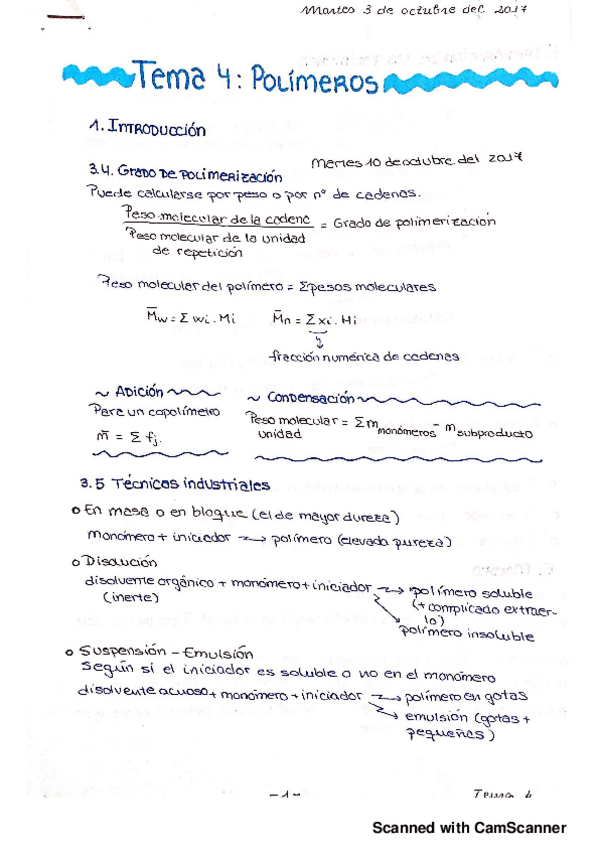 Martes 3 de octubre del 2017
Tema 4: Polímeros
1. Introducción
Martes 10 de octubre del 2017
3.4. Grado de polimerización
Puede calcularse por peso o por nº de cadenas.
Peso molecular de la cadena
Peso molecular de la unidad de repetición = Grado de polimerización
Peso molecular del polímero = Σ pesos moleculares
M̄w = Σ wi · Mi M̄n = Σ xi · Mi
fracción numérica de cadenas
~ Adición ~ ~ Condensación ~
Para un copolímero
m̄ = Σ fj.
Peso molecular unidad = Σ m monómeros - m subproducto
3.5 Técnicas industriales
o En masa o en bloque (el de mayor dureza)
monómero + iniciador → polímero (elevada pureza)
o Disolución
disolvente orgánico + monómero + iniciador → polímero soluble
(inerte) (+ complicado extraer-
lo)
polímero insoluble
o Suspensión - Emulsión
Según si el iniciador es soluble o no en el monómero
disolvente acuoso + monómero + iniciador → polímero en gotas
→ emulsión (gotas +
pequeñas)
- 1 - Tema 4
Scanned with CamScanner